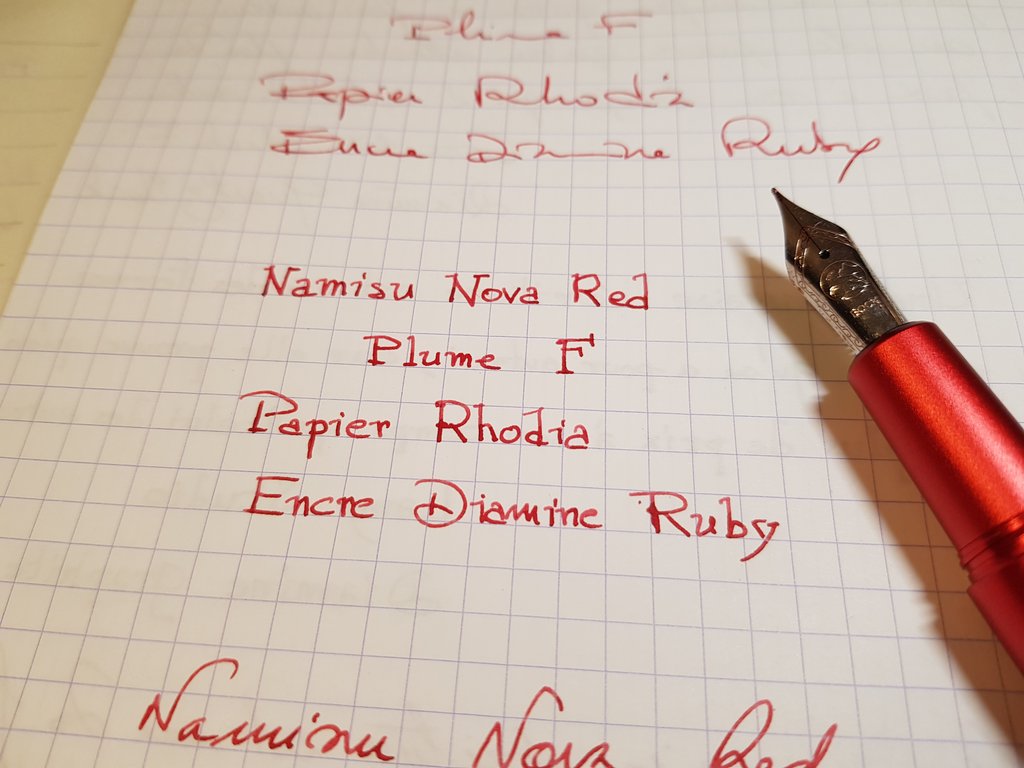 Plume F
Papier Rhodia
Encre Diamine Ruby
Namisu Nova Red
Plume F
Papier Rhodia
Encre Diamine Ruby
Namisu Nova Red
BOCK